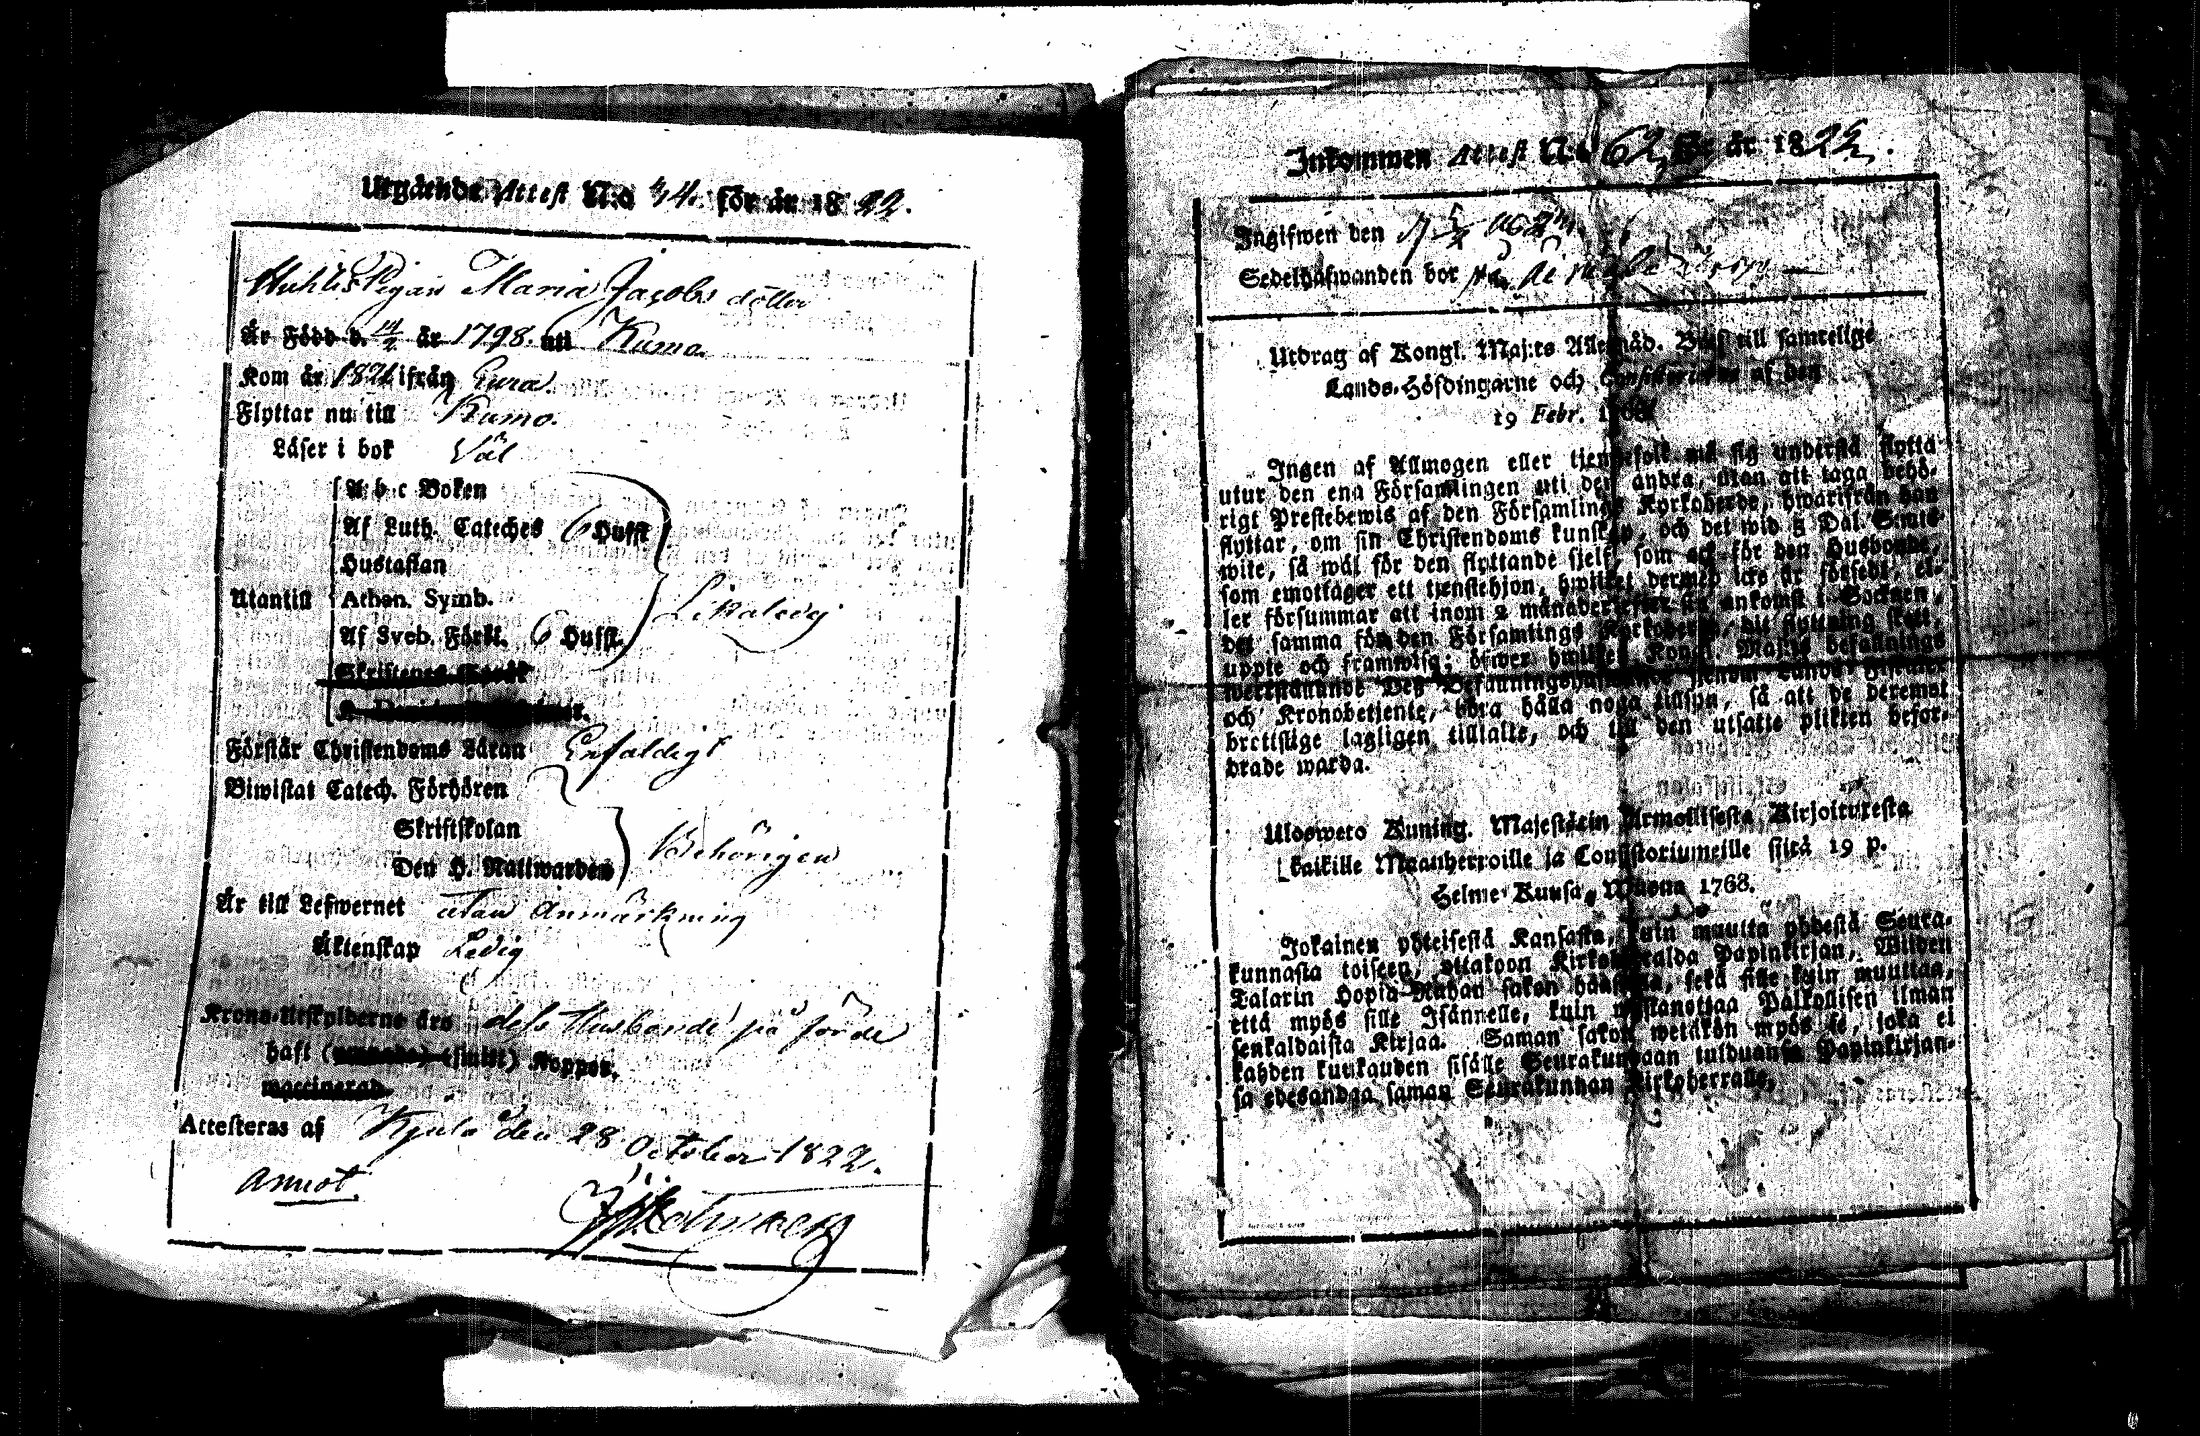 Utgående Attest N:o 34. för år 1822.
Pigan Maria Jacobs dotter
Är Född d. år 1798. uti Kumo.
Kom år 1821 ifrån Eura.
Flyttar nu till Kumo.
Läser i bok Väl
A b c Boken
Af Luth. Cateches 6 Hufst
Hustaflan
Utantill Athan. Symb.
Af Sveb. Förkl. 6 Hufst.
Likaledes
Förstår Christendoms Läran Enfaldigt
Biwistat Catech. Förhören
Skriftskolan
Den H. Nattwarden
Behörigen
Är till Lefwernet utan Anmärkning
Äktenskap Ledig
Krono-Utskylderne äro dess Husbonde påförde
haft (smitt) Koppor.
Attesteras af Kjulo den 28 October 1822.
annot.
Inkommen Attest N:o 62 för år 1822.
Ingifwen den
Sedelhafwanden bor på
Utdrag af Kongl. Maj:ts Allernåd. Bref till samtelige
Lands-Höfdingarne och Consistorierne af den
19 Febr. 1768.
Ingen af Allmogen eller tjenstefolk må sig understå flytta
utur den ena Församlingen uti den andra, utan att taga behö-
rigt Prestebewis af den Församlings Kyrkoherde, hwarifrån han
flyttar, om sin Christendoms kunskap, och det wid 5 Dal. S:mts
wite, så wäl för den flyttande sjelf, som ock för den Husbonde,
som emottager ett tjenstehjon, hwilket dermed icke är försedt, el-
ler försummar att inom 2 månader efter sin ankomst i Socknen,
det samma för den Församlings Kyrkoherde, dit flyttning skett,
uppte och framwisa; öfwer hwilket Kongl. Maj:ts befallnings
och Kronobetjente, böra hålla noga tillsyn, så att de deremot
brottslige lagligen tilltalte, och till den utsatte plikten befor-
drade warda.
Ulosweto Kuning. Majestätin Armollisesta Kirjoituxesta
kaikille Maanherroille ja Consistoriumeille siitä 19 p.
Helme Kuusa, Wuona 1768.
Jokainen yhteisestä Kansasta, kuin muutta yhdestä Seura-
kunnasta toiseen, ottakoon Kirkoherralda Papinkirjan, Wiiden
Talarin Hopia-Rahan sakon haastolla, sekä sille kuin muuttaa,
että myös sille Isännelle, kuin wastanottaa Palkollisen ilman
senkaldaista Kirjaa. Saman sakon wetäkön myös se, joka ei
kahden kuukauden sisälle Seurakundaan tulduansa Papinkirjan-
sa edesandaa saman Seurakunnan Kirkoherralle.